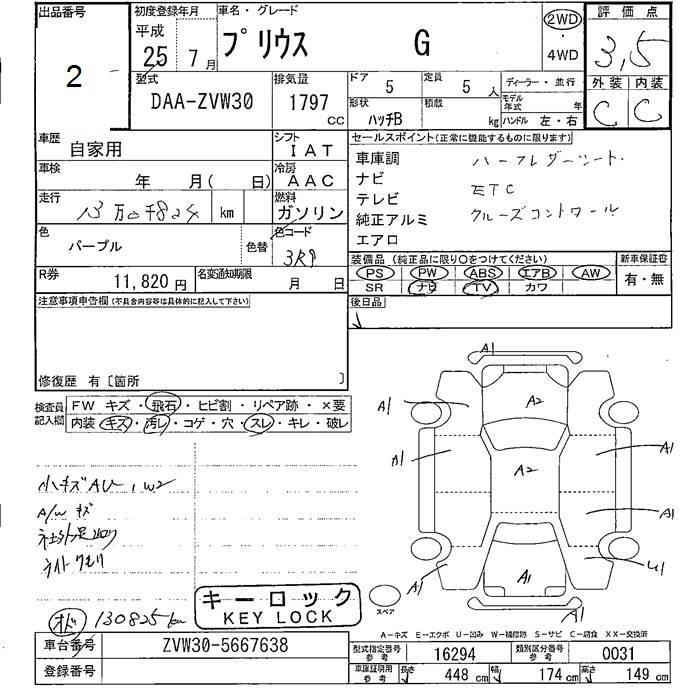 出品番号
2
初度登録年月
平成
25年 7月
車名・グレード
プリウス G
2WD
・
4WD
評価点
3,5
外装 内装
C C
型式
DAA-ZVW30
排気量
1797
CC
ドア
5
定員
5 人
形状
ハッチB
積載
kg
ディーラー・並行
モデル
年式 年
ハンドル 左・右
車歴
自家用
シフト
IAT
車検
年 月( 日)
冷房
AAC
走行
km
燃料
ガソリン
色
パープル
色替
色コード
3R9
R券
11,820 円
名変通知期限
月 日
セールスポイント(正常に機能するものに限ります)
車庫調
ナビ
テレビ
純正アルミ
エアロ
ハーフレザーシート
ETC
クルーズコントロール
装備品 (純正品に限り○をつけてください)
PS PW ABS エアB AW
SR ナビ TV カワ
新車保証書
有・無
後日品
注意事項申告欄(不具合内容等は具体的に記入して下さい)
修復歴 有〔箇所 〕
検査員
記入欄
FW キズ・飛石・ヒビ割・リペア跡・×要
内装・キズ・汚レ・コゲ・穴・スレ・キレ・破レ
小キズAU,W2
A/Wキズ
ライトクモリ
130825km
キーロック
KEY LOCK
A1
A2
A1
A1
A1
A2
A1
A1
A1
A1
スペア
A1
A-キズ E-エクボ U-凹み W-補修跡 S-サビ C-腐食 XX-交換済
車台番号
ZVW30-5667638
登録番号
型式指定番号
参考
16294
類別区分番号
参考
0031
車庫証明用
参考
長さ
448 cm
幅
174 cm
高さ
149 cm